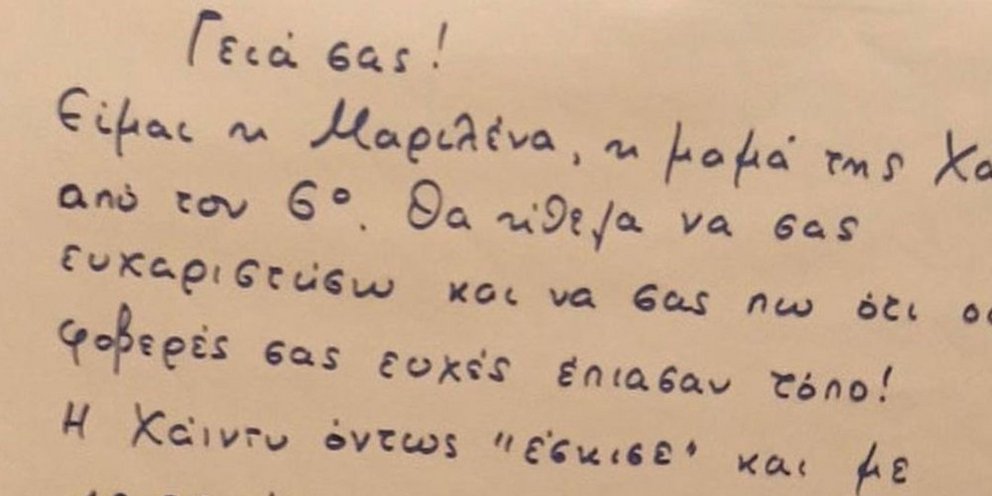 Γειά σας!
Είμαι η Μαριλένα, η μαμά της
από τον 6º. Θα ήθελα να σας
ευχαριστήσω και να σας πω ότι
φοβερές σας ευχές έπιασαν τόπο!
Η Χάιντυ όντως "έσκισε" και με